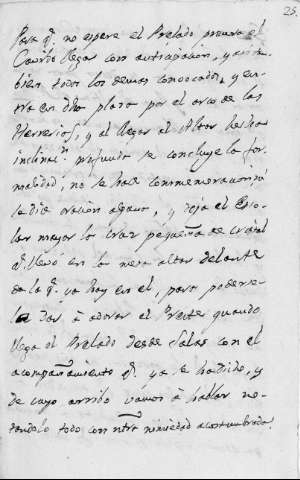 25,
Para q.e no espere el Prelado procura el
Cavildo llegar con anticipacion, y en tam-
bien todos los demas convocados, y en-
tra en dho plaza por el arco de las
Herrerias, y al llegar al Altar hecha
inclinac.n profunda se concluye la for-
malidad, no se hace conmemoracion ni
se dice oracion alguna, y deja el Cape-
lan mayor la Cruz pequeña de cristal
q.e llevó en la mesa altar delante
de la q.e ya hay en el, para poderse-
la dar á adorar el Preste quando
llega el Prelado desde Salas con el
acompañamiento q.e ya se ha dicho, y
de cuyo arribo vamos á hablar no-
tandolo todo con ntra nimiedad acostumbrada.